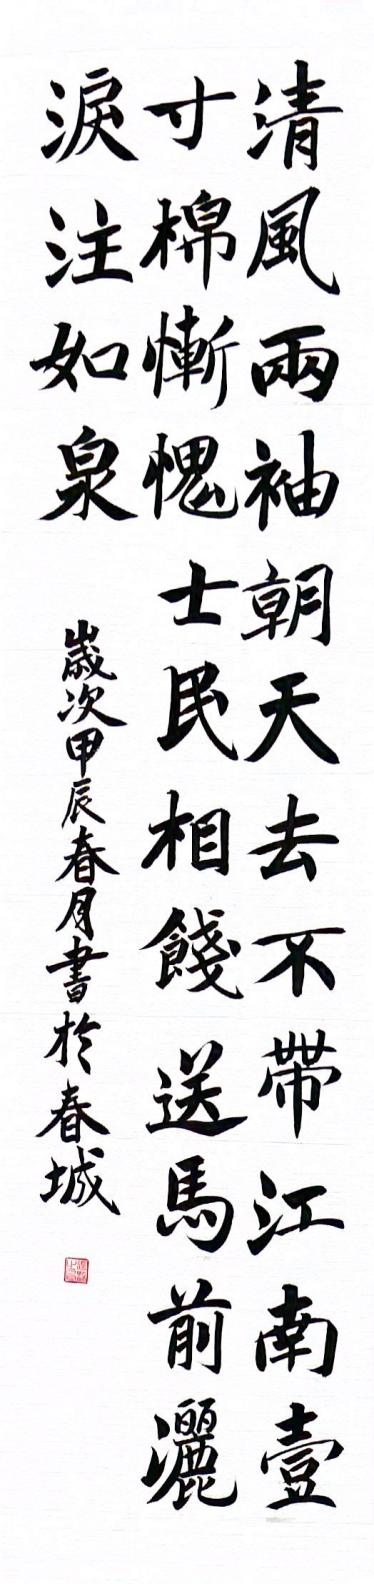 清風兩袖朝天去不帶江南壹
寸棉慚愧士民相餞送馬前灑
淚注如泉
歲次甲辰春月書於春城